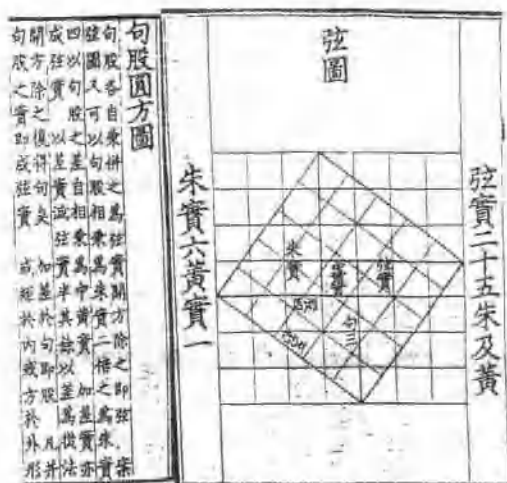 弦實二十五朱及黃
弦圖
弦實
朱實
句三
朱實六黃實一
句股圓方圖
句股各自乘併之為弦實開方除之即弦 案
弦圖又可以句股相乘為朱實二倍之為朱實
四以句股之差自相乘為中黃實 加差實亦
成弦實 以差實減弦實半其餘以差為從法
開方除之復得句矣 加差於句即股 凡并
句股之實即成弦實 或矩於內或方於外形